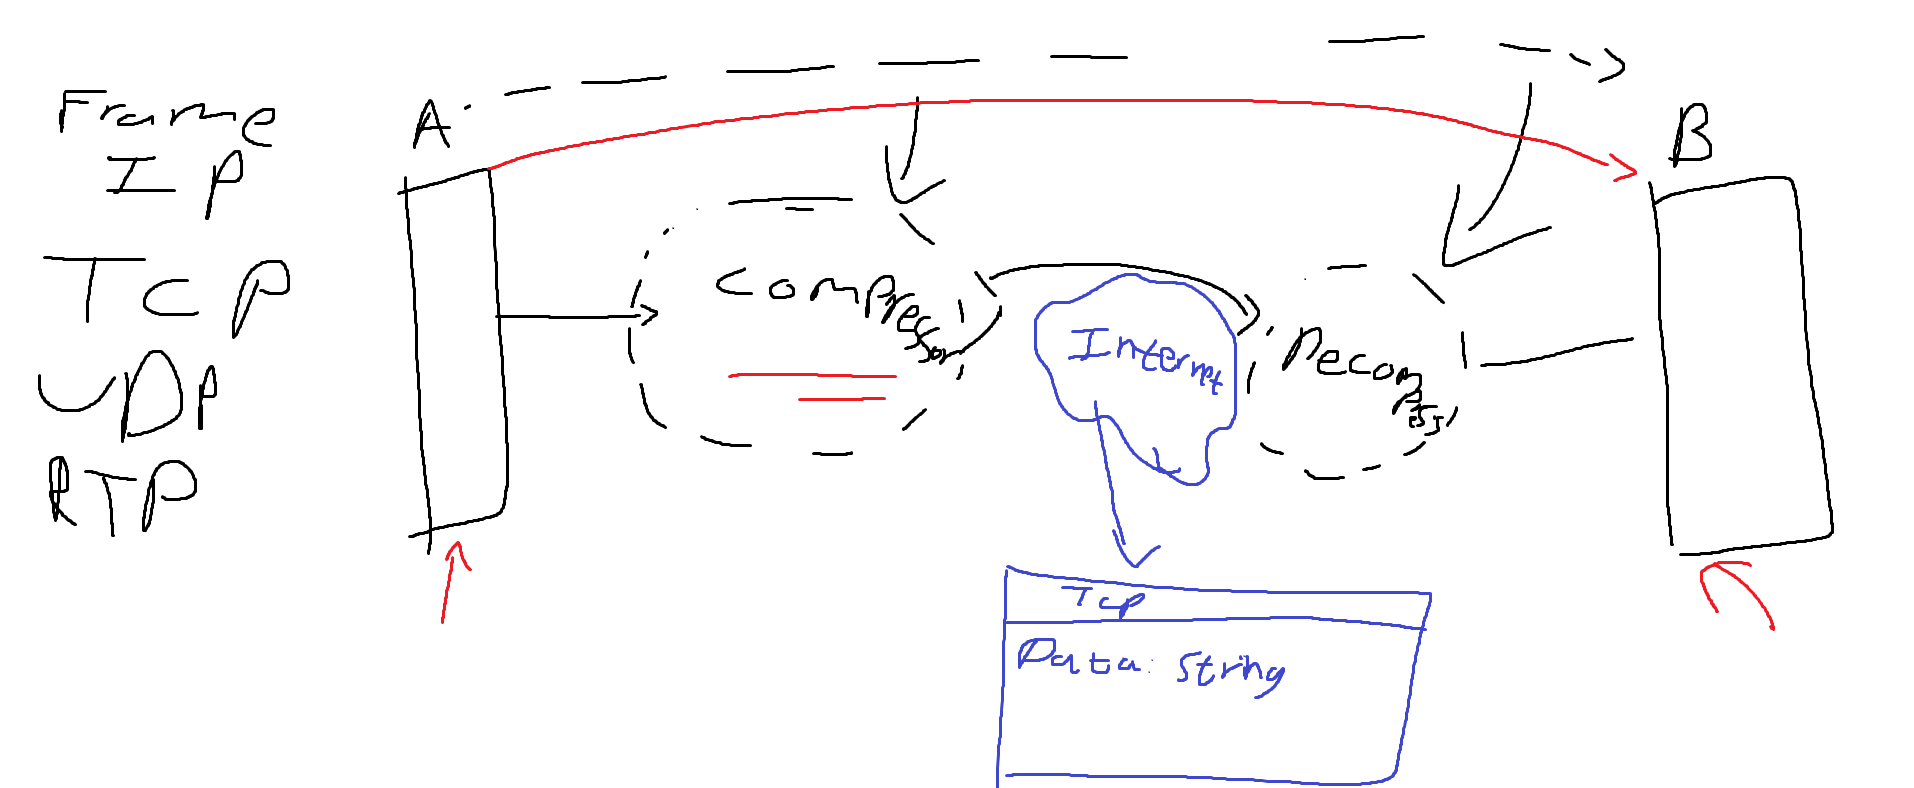 Frame
IP
TCP
UDP
RTP
A
B
Compressor
Internet
Tcp
Data: String